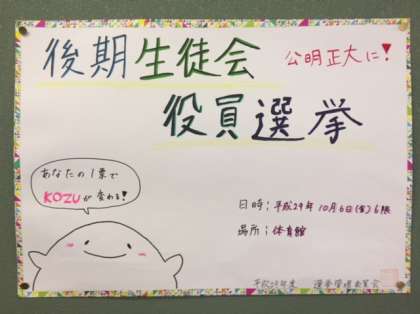 後期生徒会
公明正大に!
役員選挙
あなたの1票で
KOZUが変わる!
日時:平成29年10月6日(金)6限
場所:体育館
平成29年度 選挙管理委員会